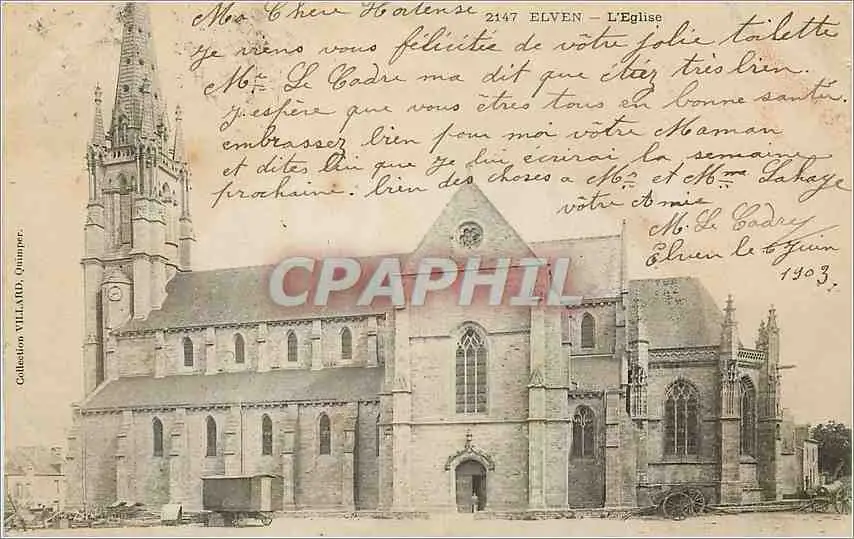 2147 ELVEN – L'Eglise
Ma Chère Hortense
je viens vous félicitée de vôtre jolie toilette
Mr Le Cadre ma dit que étiez très bien.
J'espère que vous êtres tous en bonne santé.
embrassez bien pour moi vôtre Maman
et dites lui que je lui écrirai la semaine
prochaine. bien des choses a Mr et Mme Lahaye
vôtre Amie
M. Le Cadre
Elven le 6 Juin
1903.
Collection VILLARD, Quimper.
CPAPHIL